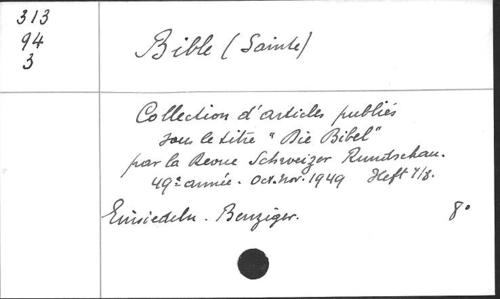 313
94
3
Bible (Sainte)
Collection d'articles publiés
sous le titre "Die Bibel"
par la Revue Schweizer Rundschau.
49e année. Oct. Nov. 1949 Heft 7/8.
Einsiedeln. Benziger. 8°